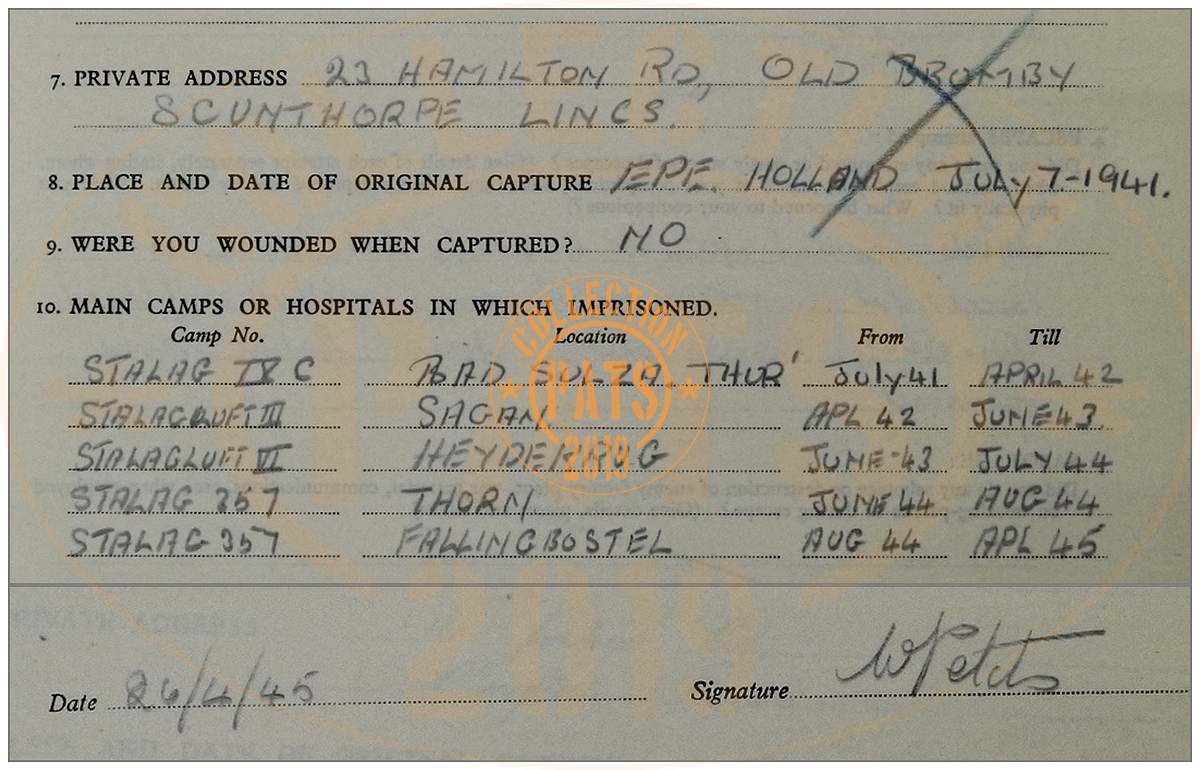 7. PRIVATE ADDRESS 23 HAMILTON RD, OLD BROMBY
SCUNTHORPE LINCS.
8. PLACE AND DATE OF ORIGINAL CAPTURE EPE. HOLLAND JULY 7-1941.
9. WERE YOU WOUNDED WHEN CAPTURED? NO
10. MAIN CAMPS OR HOSPITALS IN WHICH IMPRISONED.
Camp No. Location From Till
STALAG IX C BAD SULZA. THUR' July 41 APRIL 42
STALAGLUFT III SAGAN APL 42 JUNE 43.
STALAGLUFT VI HEYDEKRUG JUNE-43 JULY 44
STALAG 357 THORN JUNE 44 AUG 44
STALAG 357 FALLINGBOSTEL AUG 44 APL 45
COLLECTION
PATS
2019
Date 26/4/45 Signature W Petch